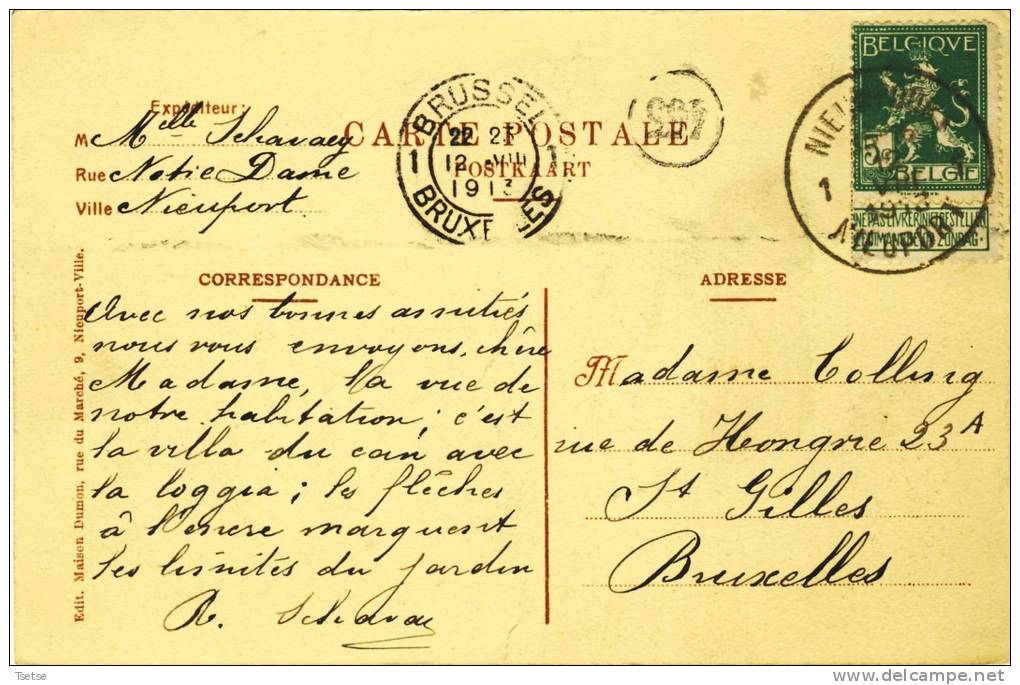 Expéditeur:
M Melle Schavaey
Rue Notre Dame
Ville Nieuport
CARTE POSTALE
POSTKAART
BRUSSEL
1 22 23 1
12 VIII
1913
BRUXELLES
BELGIQVE
5
BELGIE
NE PAS LIVRER
NIET BESTELLEN
ZONDAG
1 1
1913
NIEUPORT
CORRESPONDANCE
Avec nos bonnes amitiés
nous vous envoyons, chère
Madame, la vue de
notre habitation; c'est
la villa du coin avec
la loggia; les flêches
à l'encre marquent
les limites du jardin
R. Schavaey
ADRESSE
Madame Colling
rue de Hongrie 23A
St Gilles
Bruxelles
Edit. Maison Dumon, rue du Marché, 9, Nieuport-Ville.
Tsetse
www.delcampe.net